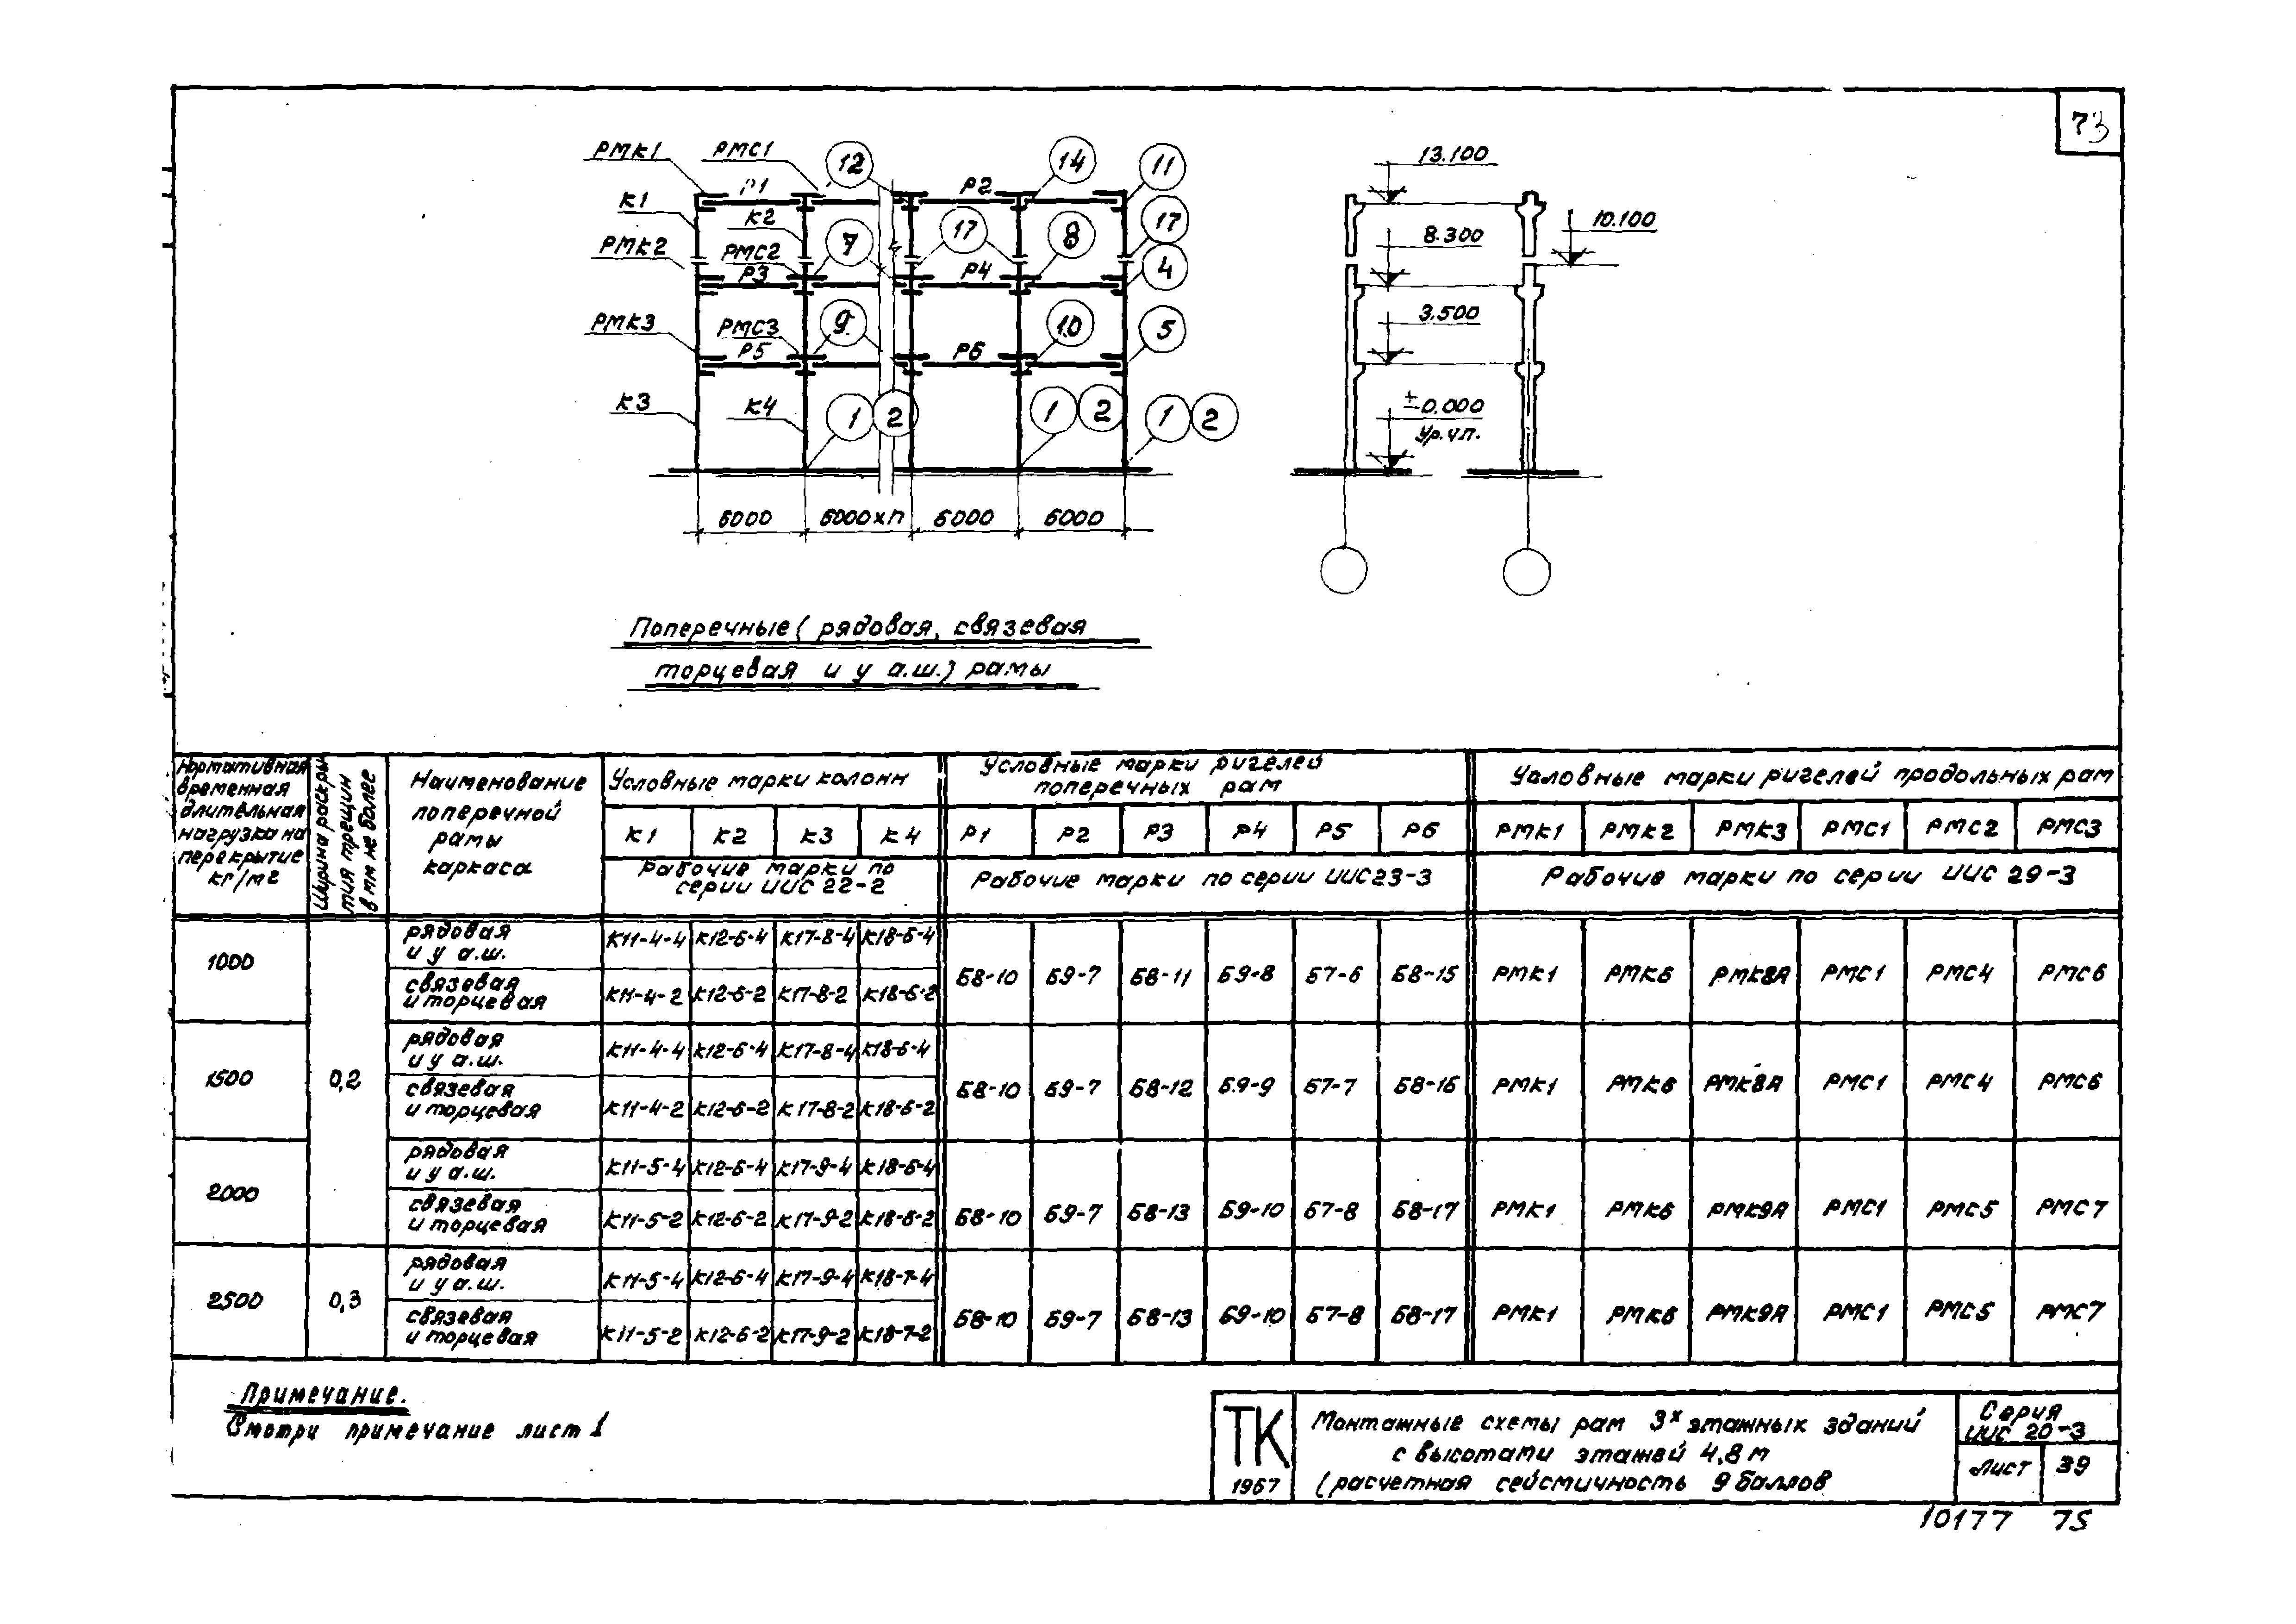 73
РМК1 РМС1 12 14 11 13.100
Р1 Р2
К1 К2 7 17 8 17 8.300 10.100
РМК2 РМС2 4
Р3 Р4
РМК3 РМС3 9 10 5 3.500
Р5 Р6
К3 К4 1 2 1 2 1 2 ±0.000
Ур.ч.п.
6000 6000хп 6000 6000
Поперечные ( рядовая, связевая
торцевая и у а.ш.) рамы
Нормативная временная длительная нагрузка на перекрытие кг/м2
Ширина раскрытия трещин в мм не более
Наименование поперечной рамы каркаса
Условные марки колонн
Условные марки ригелей поперечных рам
Условные марки ригелей продольных рам
К1 К2 К3 К4 Р1 Р2 Р3 Р4 Р5 Р6 РМК1 РМК2 РМК3 РМС1 РМС2 РМС3
Рабочие марки по серии ИИС 22-2
Рабочие марки по серии ИИС23-3
Рабочие марки по серии ИИС 29-3
1000
рядовая и у а.ш. К11-4-4 К12-6-4 К17-8-4 К18-6-4
связевая и торцевая К11-4-2 К12-6-2 К17-8-2 К18-6-2
Б8-10 Б9-7 Б8-11 Б9-8 Б7-6 Б8-15 РМК1 РМК6 РМК8А РМС1 РМС4 РМС6
1500 0,2
рядовая и у а.ш. К11-4-4 К12-6-4 К17-8-4 К18-6-4
связевая и торцевая К11-4-2 К12-6-2 К17-8-2 К18-6-2
Б8-10 Б9-7 Б8-12 Б9-9 Б7-7 Б8-16 РМК1 РМК6 РМК8А РМС1 РМС4 РМС6
2000
рядовая и у а.ш. К11-5-4 К12-6-4 К17-9-4 К18-6-4
связевая и торцевая К11-5-2 К12-6-2 К17-9-2 К18-6-2
Б8-10 Б9-7 Б8-13 Б9-10 Б7-8 Б8-17 РМК1 РМК6 РМК9А РМС1 РМС5 РМС7
2500 0,3
рядовая и у а.ш. К11-5-4 К12-6-4 К17-9-4 К18-7-4
связевая и торцевая К11-5-2 К12-6-2 К17-9-2 К18-7-2
Б8-10 Б9-7 Б8-13 Б9-10 Б7-8 Б8-17 РМК1 РМК6 РМК9А РМС1 РМС5 РМС7
Примечание.
Смотри примечание лист 1
ТК
1967
Монтажные схемы рам 3х этажных зданий
с высотами этажей 4,8 м
(расчетная сейсмичность 9 баллов
Серия
ИИС 20-3
Лист 39
10177 75